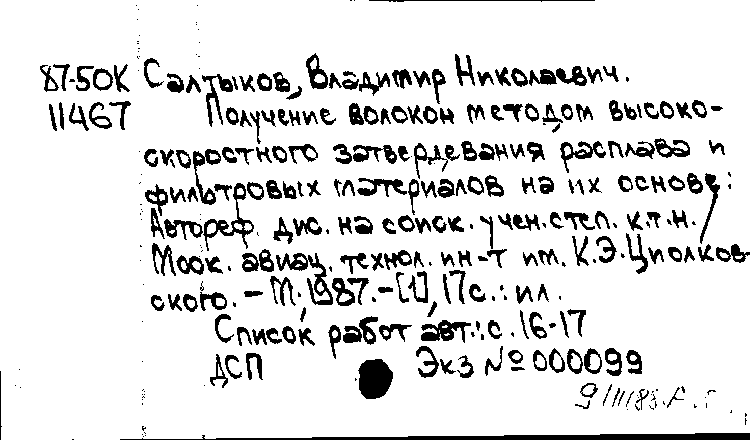 87-50К Салтыков, Владимир Николаевич.
11467 Получение волокон методом высоко-
скоростного затвердевания расплава и
фильтровых материалов на их основе:
Автореф. дис. на соиск. учен. степ. к.т.н. /
Моск. авиац. технол. ин-т им. К.Э.Циолков-
ского. - М., 1987. - [1], 17 с.: ил.
Список работ авт.: с. 16-17
ДСП Экз № 000099
9/II/88.